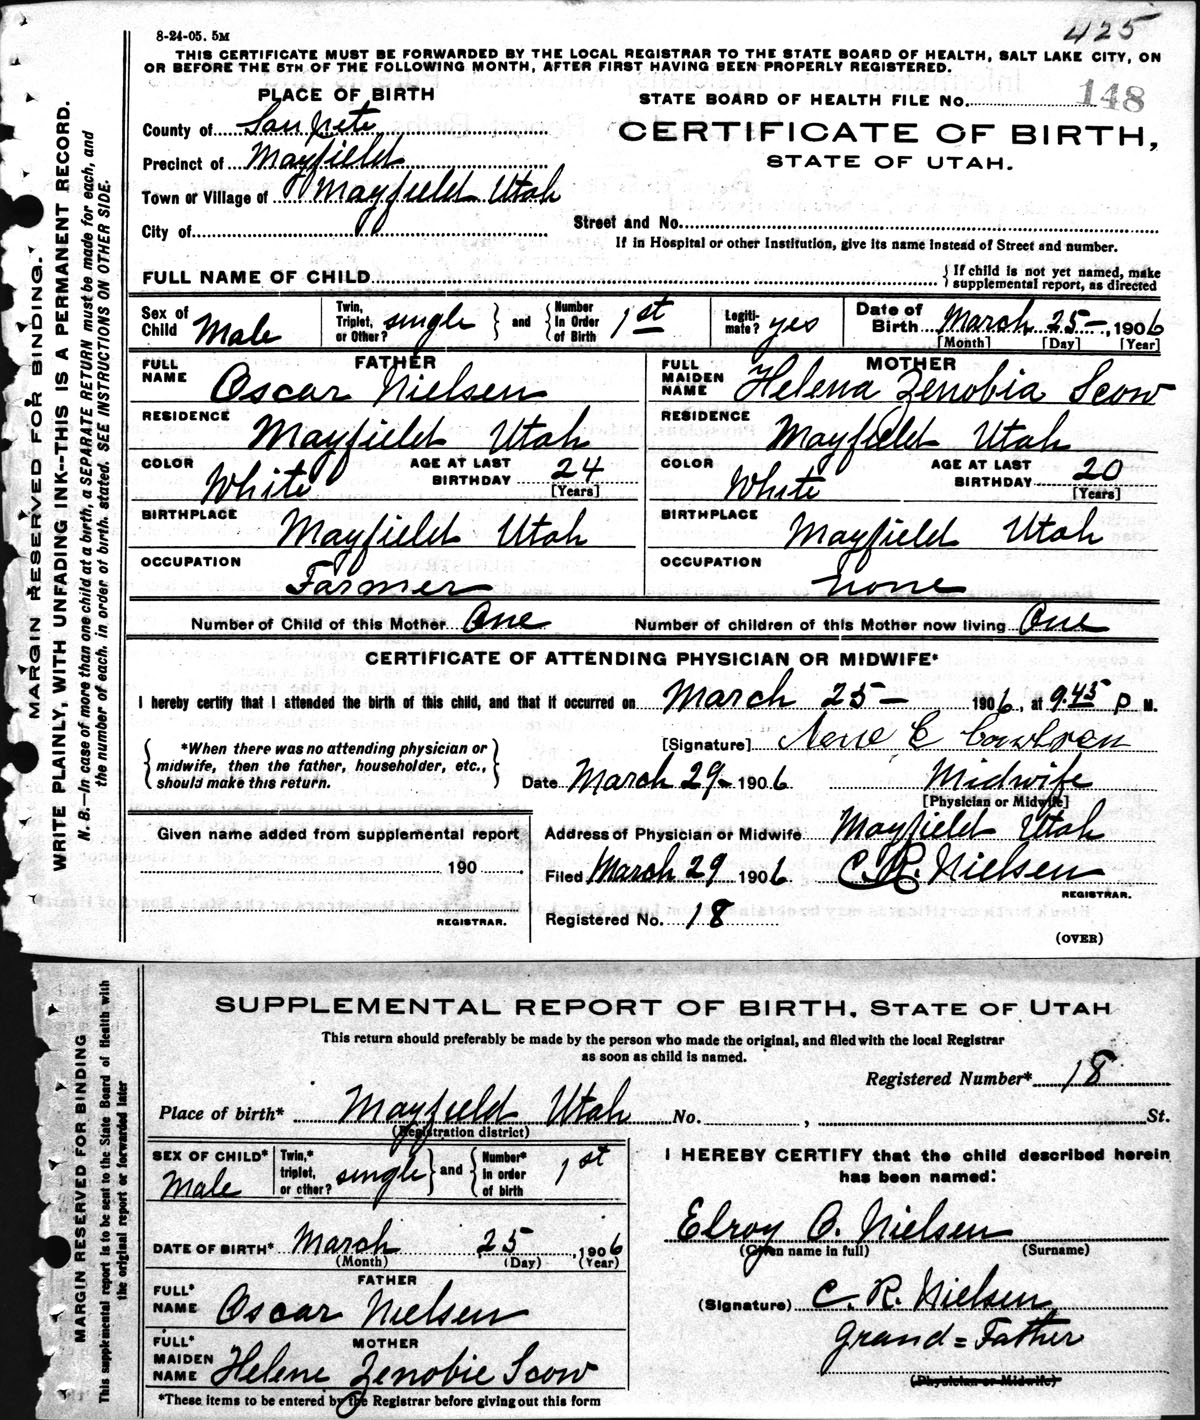 8-24-05. 5M
425
THIS CERTIFICATE MUST BE FORWARDED BY THE LOCAL REGISTRAR TO THE STATE BOARD OF HEALTH, SALT LAKE CITY, ON
OR BEFORE THE 5TH OF THE FOLLOWING MONTH, AFTER FIRST HAVING BEEN PROPERLY REGISTERED.
MARGIN RESERVED FOR BINDING.
WRITE PLAINLY, WITH UNFADING INK--THIS IS A PERMANENT RECORD.
N. B.—In case of more than one child at a birth, a SEPARATE RETURN must be made for each, and
the number of each, in order of birth, stated. SEE INSTRUCTIONS ON OTHER SIDE.
PLACE OF BIRTH
County of San Pete
Precinct of Mayfield
Town or Village of Mayfield Utah
City of
STATE BOARD OF HEALTH FILE No. 148
CERTIFICATE OF BIRTH,
STATE OF UTAH.
Street and No.
If in Hospital or other Institution, give its name instead of Street and number.
FULL NAME OF CHILD { If child is not yet named, make
supplemental report, as directed
Sex of Child Male
Twin, Triplet, or Other? single } and { Number In Order of Birth 1st
Legiti- mate? yes
Date of Birth March 25 —, 1906
[Month] [Day] [Year]
FATHER
FULL NAME Oscar Nielsen
RESIDENCE Mayfield Utah
COLOR White AGE AT LAST BIRTHDAY 24
[Years]
BIRTHPLACE Mayfield Utah
OCCUPATION Farmer
MOTHER
FULL MAIDEN NAME Helena Zenobia Scow
RESIDENCE Mayfield Utah
COLOR White AGE AT LAST BIRTHDAY 20
[Years]
BIRTHPLACE Mayfield Utah
OCCUPATION none
Number of Child of this Mother One Number of children of this Mother now living One
CERTIFICATE OF ATTENDING PHYSICIAN OR MIDWIFE*
I hereby certify that I attended the birth of this child, and that it occurred on March 25 — 1906, at 9.45 P M.
{ *When there was no attending physician or
midwife, then the father, householder, etc.,
should make this return. }
[Signature] C
Date March 29 - 1906 Midwife
[Physician or Midwife]
Given name added from supplemental report
190
REGISTRAR.
Address of Physician or Midwife Mayfield Utah
Filed March 29 1906 C. R. Nielsen
REGISTRAR.
Registered No. 18
(OVER)
MARGIN RESERVED FOR BINDING
This supplemental report is to be sent to the State Board of Health with
the original report or forwarded later
SUPPLEMENTAL REPORT OF BIRTH, STATE OF UTAH
This return should preferably be made by the person who made the original, and filed with the local Registrar
as soon as child is named.
Registered Number* 18
Place of birth* Mayfield Utah No. , St.
(Registration district)
SEX OF CHILD* Male
Twin,* triplet, or other? single } and { Number* in order of birth 1st
DATE OF BIRTH* March 25, 1906
(Month) (Day) (Year)
FATHER
FULL* NAME Oscar Nielsen
MOTHER
FULL* MAIDEN NAME Helene Zenobie Scow
*These items to be entered by the Registrar before giving out this form
I HEREBY CERTIFY that the child described herein
has been named:
Elroy O. Nielsen
(Given name in full) (Surname)
(Signature) C. R. Nielsen
Grand=Father
(Physician or Midwife)